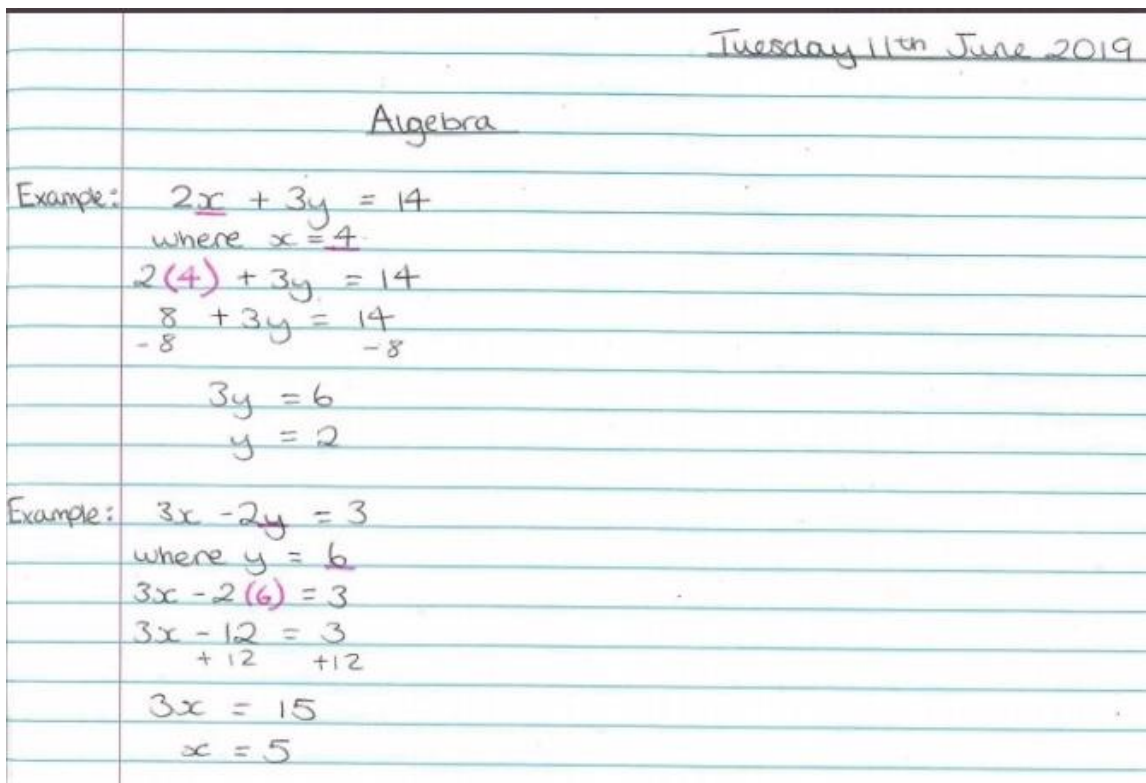 Tuesday 11th June 2019
Algebra
Example: 2x + 3y = 14
where x = 4
2(4) + 3y = 14
8 + 3y = 14
-8 -8
3y = 6
y = 2
Example: 3x - 2y = 3
where y = 6
3x - 2(6) = 3
3x - 12 = 3
+12 +12
3x = 15
x = 5